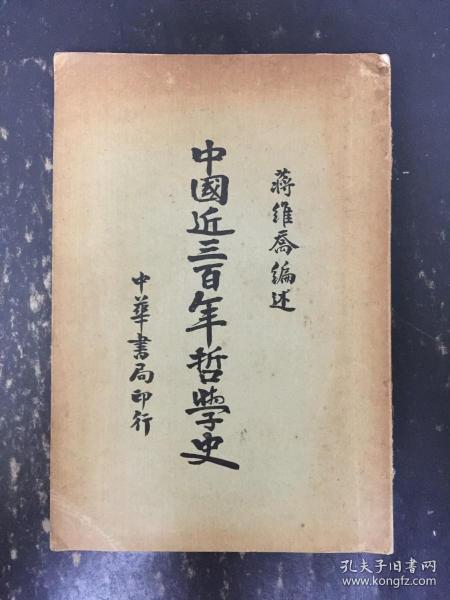 蔣維喬編述
中國近三百年哲學史
中華書局印行
孔夫子旧书网
www.kongfz.com